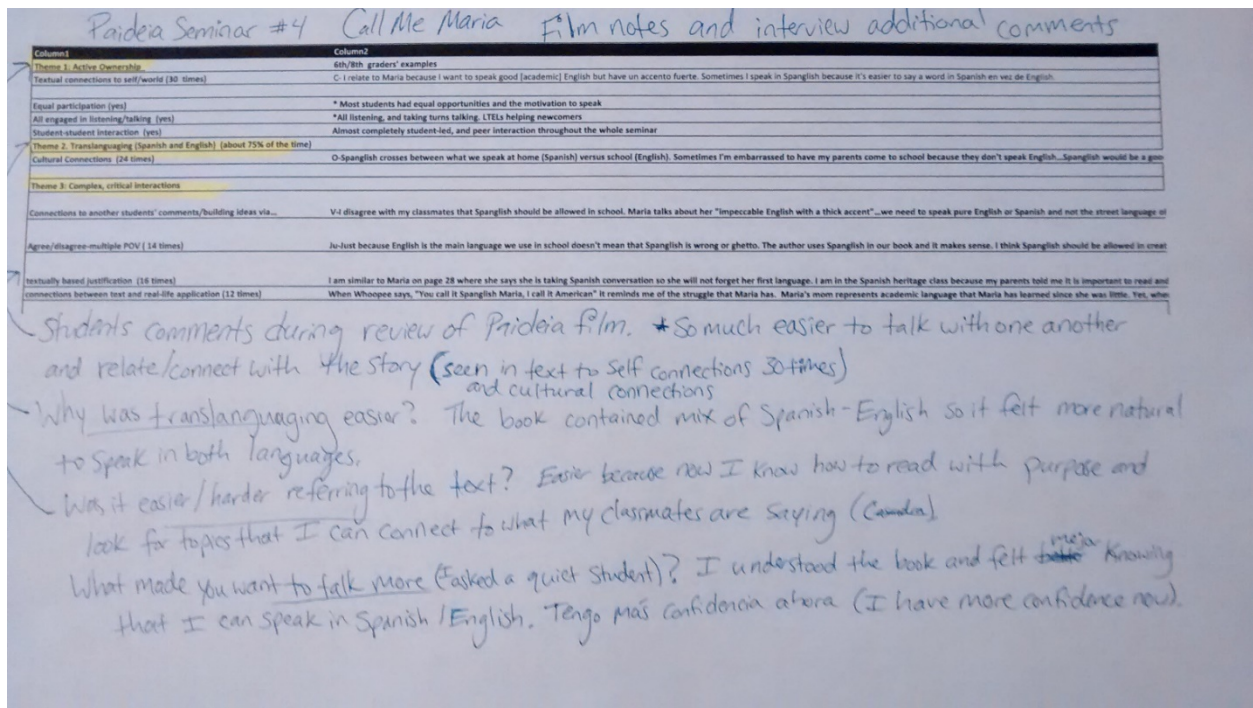 Paideia Seminar #4 Call Me Maria Film notes and interview additional comments
Column1 Column2
Theme 1: Active Ownership 6th/8th graders' examples
Textual connections to self/world (30 times) C- I relate to Maria because I want to speak good [academic] English but have un accento fuerte. Sometimes I speak in Spanglish because it's easier to say a word in Spanish en vez de English.
Equal participation (yes) * Most students had equal opportunities and the motivation to speak
All engaged in listening/talking (yes) *All listening, and taking turns talking. LTELs helping newcomers
Student-student interaction (yes) Almost completely student-led, and peer interaction throughout the whole seminar
Theme 2. Translanguaging (Spanish and English) (about 75% of the time)
Cultural Connections (24 times) O-Spanglish crosses between what we speak at home (Spanish) versus school (English). Sometimes I'm embarrassed to have my parents come to school because they don't speak English...Spanglish would be a
Theme 3: Complex, critical interactions
Connections to another students' comments/building ideas via... V-I disagree with my classmates that Spanglish should be allowed in school. Maria talks about her "impeccable English with a thick accent"...we need to speak pure English or Spanish and not the street language of
Agree/disagree-multiple POV ( 14 times) Ju-Just because English is the main language we use in school doesn't mean that Spanglish is wrong or ghetto. The author uses Spanglish in our book and it makes sense. I think Spanglish should be allowed in creat
textually based justification (16 times) I am similar to Maria on page 28 where she says she is taking Spanish conversation so she will not forget her first language. I am in the Spanish heritage class because my parents told me it is important to read and
connections between text and real-life application (12 times) When Whoopee says, "You call it Spanglish Maria, I call it American" it reminds me of the struggle that Maria has. Maria's mom represents academic language that Maria has learned since she was little. Yet, when
Students comments during review of Paideia film. *So much easier to talk with one another
and relate/connect with the story (seen in text to self connections 30 times)
and cultural connections
Why was translanguaging easier? The book contained mix of Spanish-English so it felt more natural
to speak in both languages.
Was it easier/harder referring to the text? Easier because now I know how to read with purpose and
look for topics that I can connect to what my classmates are saying
What made you want to talk more (I asked a quiet student)? I understood the book and felt mejor knowing
that I can speak in Spanish/English. Tengo más confidencia ahora (I have more confidence now).